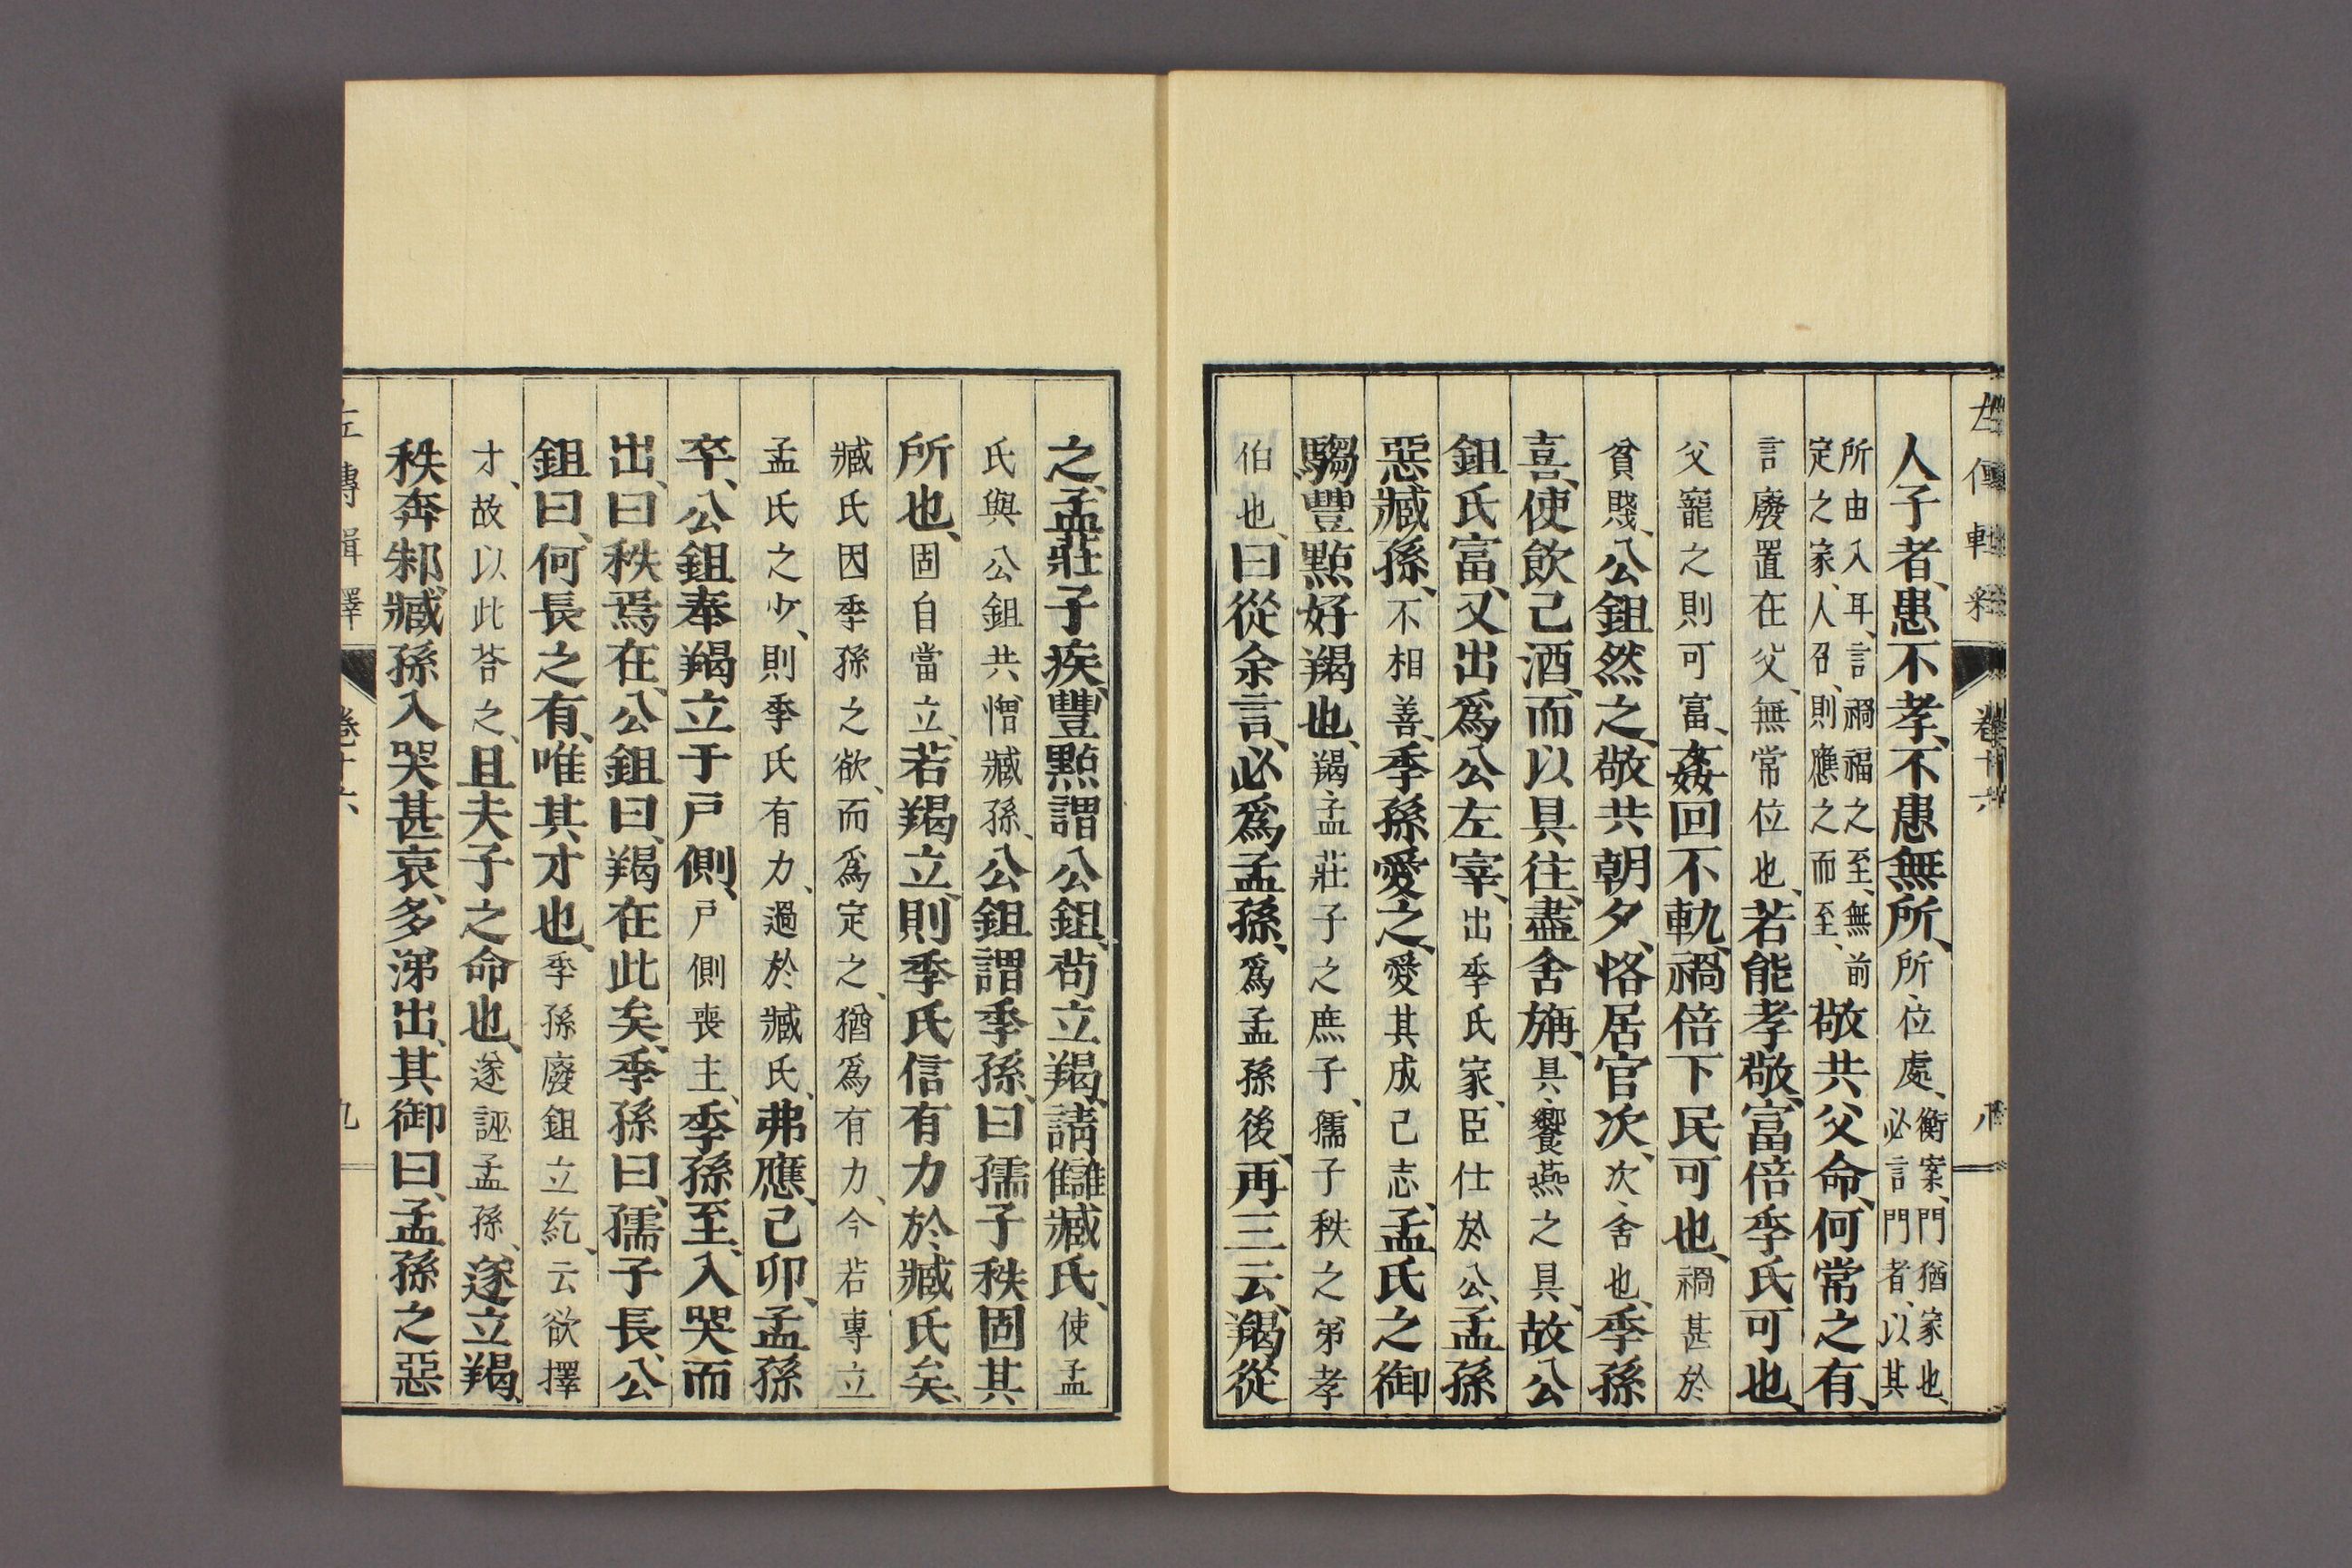 左傳輯釋 卷十六 八
人子者、患不孝、不患無所、所、位處、衡案、門猶家也、必言門者、以其
所由入耳、言禍福之至、無前定之家、人召、則應之而至、敬共父命、何常之有、
言廢置在父、無常位也、若能孝敬、富倍季氏可也、
父寵之則可富、姦回不軌、禍倍下民可也、禍甚於
貧賤、公鉏然之、敬共朝夕、恪居官次、次、舍也、季孫
喜、使飲己酒、而以具往、盡舍旃、具、饗燕之具、故公
鉏氏富、又出爲公左宰、出季氏家、臣仕於公、孟孫
惡臧孫、不相善、季孫愛之、愛其成己志、孟氏之御
騶豐點好羯也、羯、孟莊子之庶子、孺子秩之弟孝
伯也、曰從余言、必爲孟孫、爲孟孫後、再三云、羯從
之、孟莊子疾、豐點謂公鉏、苟立羯、請讎臧氏、使孟
氏與公鉏共憎臧孫、公鉏謂季孫、曰孺子秩固其
所也、固自當立、若羯立、則季氏信有力於臧氏矣、
臧氏因季孫之欲、而爲定之、猶爲有力、今若專立
孟氏之少、則季氏有力、過於臧氏、弗應、己卯、孟孫
卒、公鉏奉羯立于戶側、戶側喪主、季孫至、入哭而
出、曰秩焉在、公鉏曰、羯在此矣、季孫曰、孺子長、公
鉏曰、何長之有、唯其才也、季孫廢鉏立紇、云欲擇
才、故以此荅之、且夫子之命也、遂誣孟孫、遂立羯、
秩奔邾、臧孫入哭甚哀、多涕出、其御曰、孟孫之惡
左傳輯釋 卷十六 九